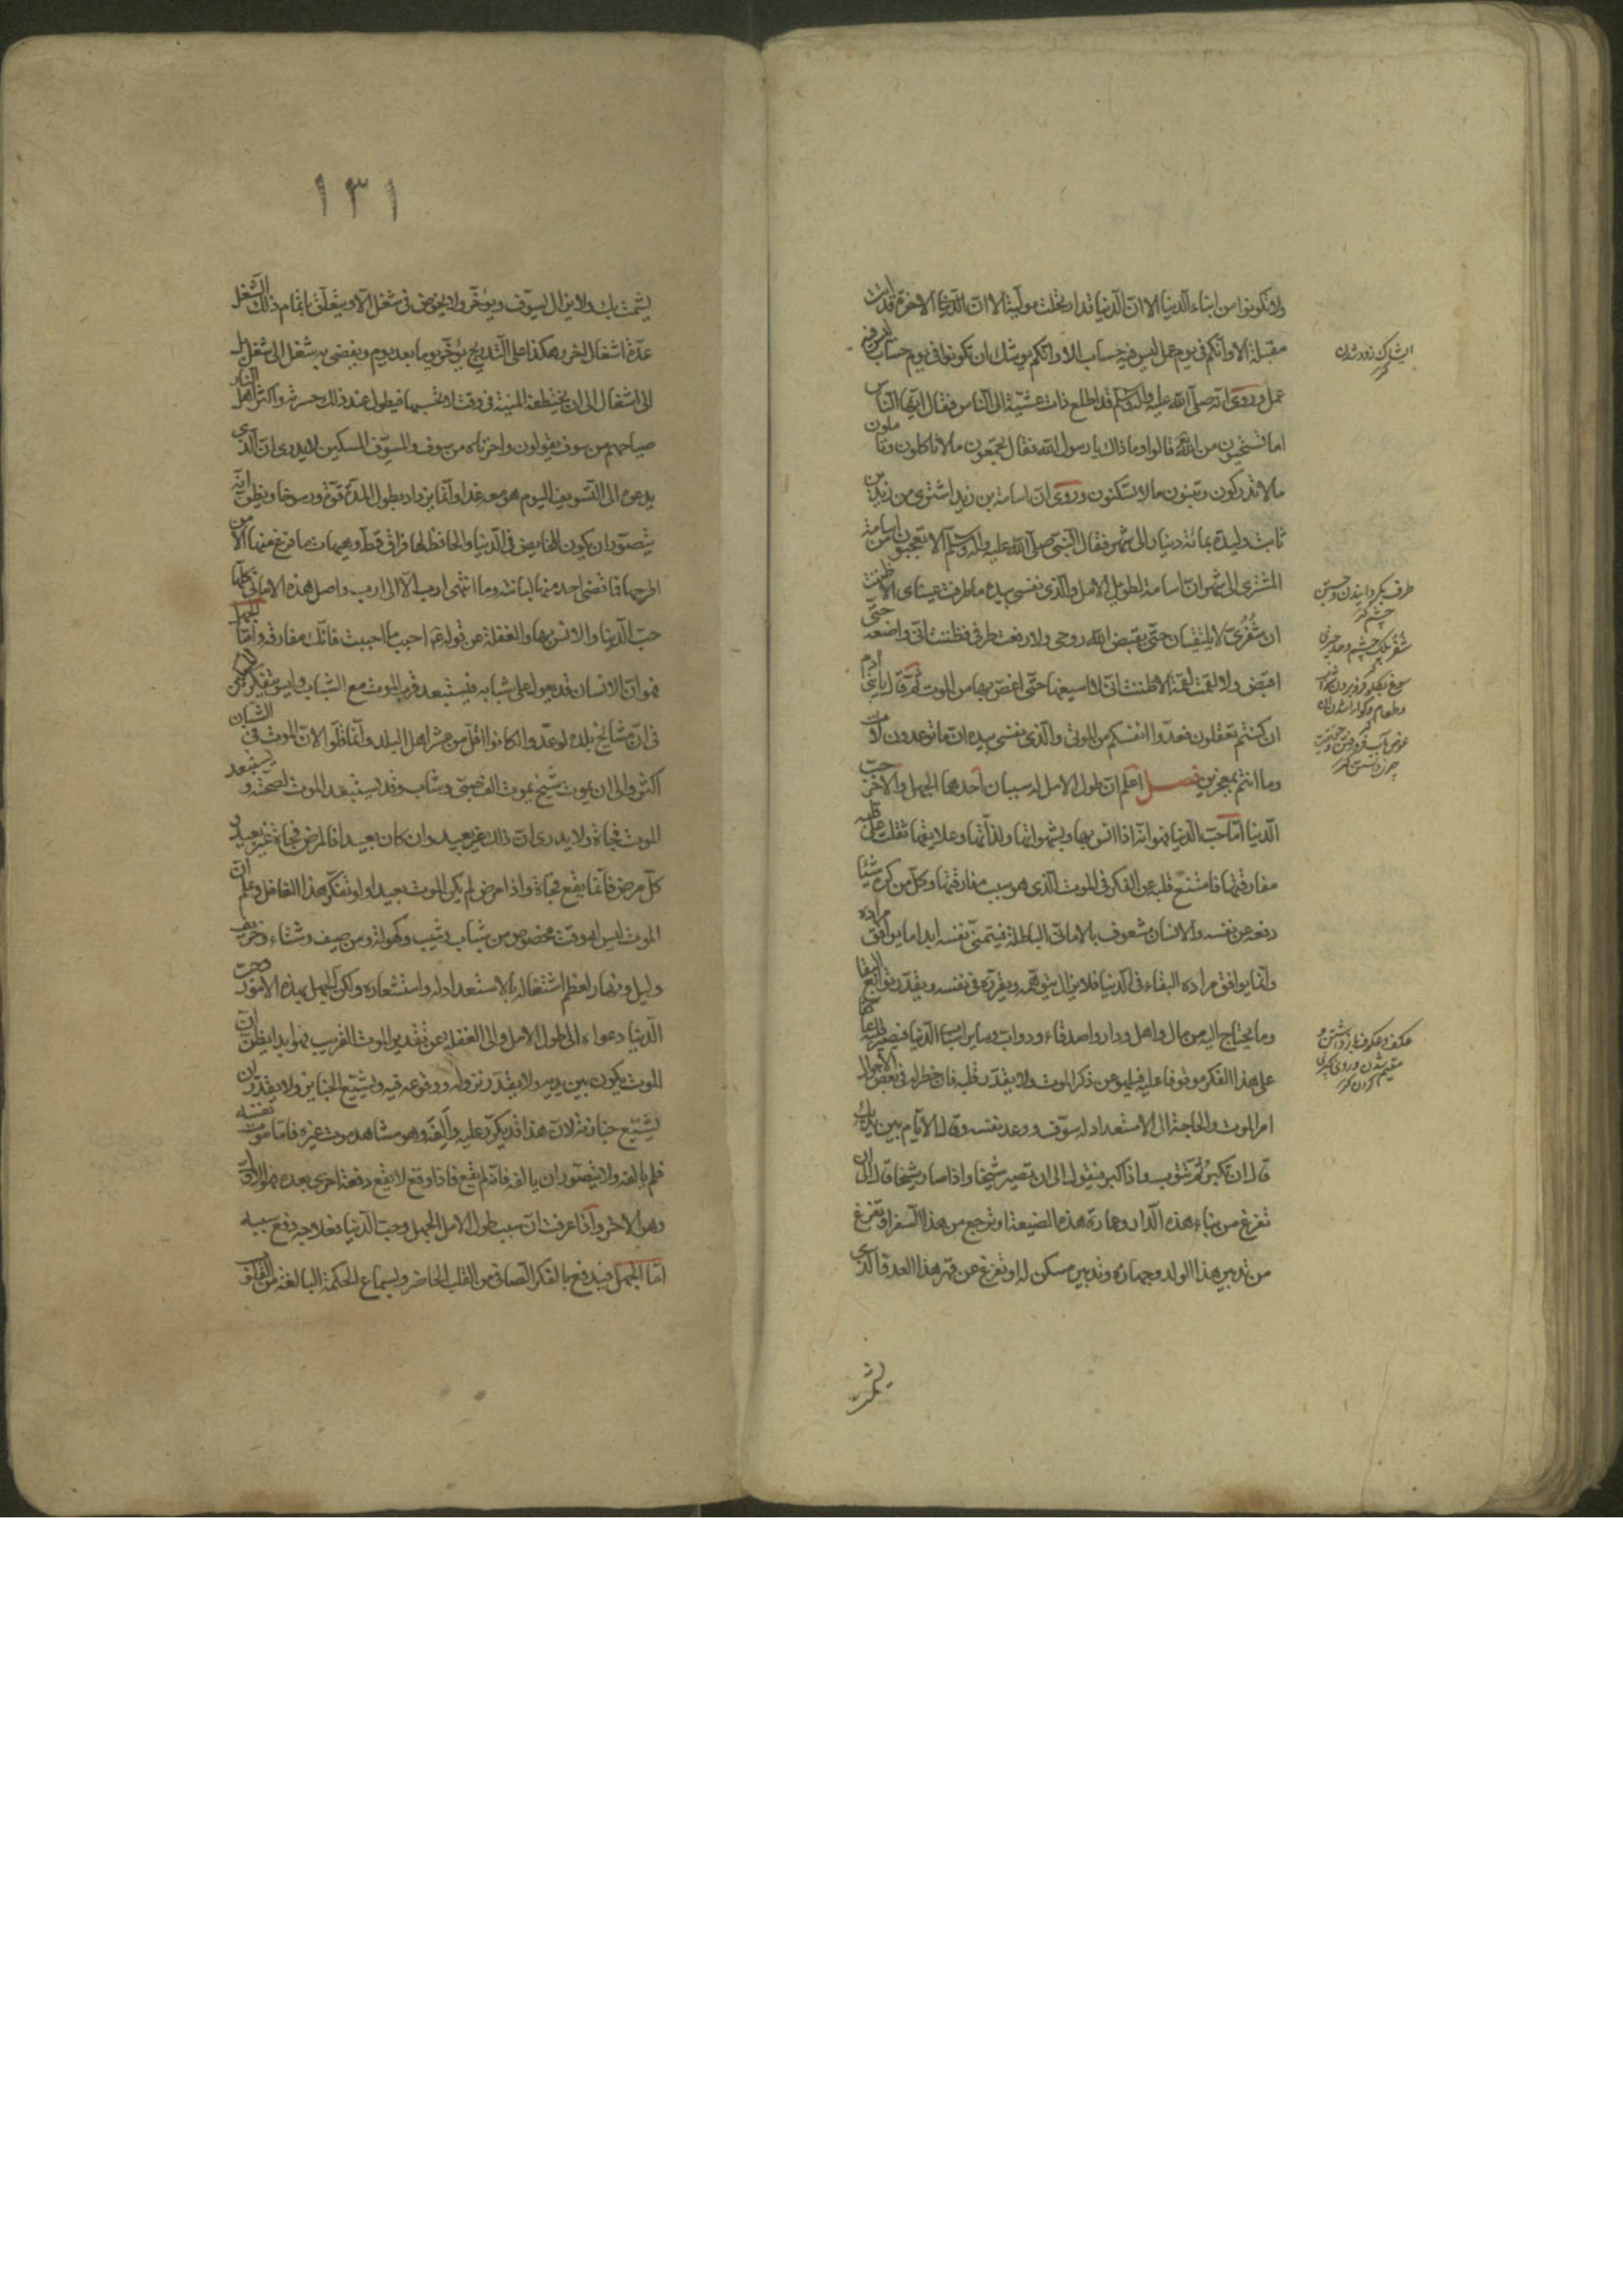 ولا تكونوا من ابناء الدنيا الا ان الدنيا قد ارتحلت مولية الا ان الاخرة قد اتت
مقبلة الا وانكم في يوم عمل ليس فيه حساب الا وانكم يوشك ان تكونوا في يوم حساب ليس فيه
عمل وروى انه صلى الله عليه وآله وسلم قد اطلع ذات عشية الى الناس فقال ايها الناس
اما تستحيون من الله قالوا وما ذاك يا رسول الله فقال تجمعون ما لا تاكلون وتاملون
ما لا تدركون وتبنون ما لا تسكنون وروى ان اسامة بن زيد اشترى من زيد بن
ثابت وليدة بمائة دينار الى شهر فقال النبي صلى الله عليه وآله وسلم الا تعجبون من اسامة
المشترى الى شهر ان اسامة لطويل الامل والذى نفسى بيده ما طرفت عيناى الا ظننت
ان شفرى لا يلتقيان حتى يقبض الله روحى ولا رفعت طرفى فظننت انى واضعه حتى
اقبض ولا لقمت لقمة الا ظننت انى لا اسيغها حتى اغص بها من الموت ثم قال يا بنى آدم
ان كنتم تعقلون فعدوا انفسكم من الموتى والذى نفسى بيده ان ما توعدون لآت
وما انتم بمعجزين فصل اعلم ان طول الامل له سببان احدهما الجهل والاخر حب
الدنيا اما حب الدنيا فهو انه اذا انس بها وبشهواتها ولذاتها وعلايقها ثقلت على قلبه
مفارقتها فامتنع قلبه عن الفكر فى الموت الذى هو سبب مفارقتها وكل من كره شيئا
دفعه عن نفسه والانسان شعوف بالامانى الباطلة فيتمنى نفسه ابدا ما يوافق مراده
وانما يوافق مراده البقاء فى الدنيا فلا يزال يتوهمه ويقرره فى نفسه ويقدر توابع البقا
وما يحتاج اليه من مال واهل ودار واصدقاء ودواب وساير اسباب الدنيا فيصير قلبه عاكفا
على هذا الفكر موقوفا عليه فيلهو عن ذكر الموت ولا يقدر قلبه فان خطر له فى بعض الاحوال
امر الموت والحاجة الى الاستعداد له سوف ووعد نفسه وقال الايام بين يديك
قال ان تكبر ثم تتوب واذا كبر فيقول الى ان تصير شيخا واذا صار شيخا قال الى ان
تفرغ من بناء هذه الدار وعمارة هذه الضيعة او ترجع من هذا السفر او تفرغ
من تدبير هذا الولد وجهازه وتدبير مسكن له او تفرغ عن قهر هذا العدو الذى
ايشاك زود شدن كنز
۱۳۱
يشمت بك ولا يزال يسوف ويؤخر ولا يخوض فى شغل الا ويتعلق باتمام ذلك الشغل
عدة اشغال اخر وهكذا على التدريج يؤخر يوما بعد يوم ويفضى به شغل الى شغل بل
الى اشغال الى ان تختطفه المنية فى وقت لا يحتسبها فيطول عند ذلك حسرته واكثر اهل النار
صياحهم من سوف يقولون واحزناه من سوف والمسوف المسكين لا يدرى ان الذى
يدعوه الى التسويف اليوم هو معه غدا وانما يزداد بطول المدة قوة ورسوخا ويظن انه
يتصور ان يكون للخايض فى الدنيا والحافظ لها فراق قط وهيهات ما فرغ منها الا من
اطرحها فما قضى احد منها لبانته وما انتهى ارب الا الى ارب واصل هذه الامانى كلها
حب الدنيا والانس بها والغفلة عن قوله احبب ما احببت فانك مفارقه واما الجهل
فهو ان الانسان قد يعول على شبابه فيستبعد قرب الموت مع الشباب وليس يتفكر المسكين
فى ان مشايخ بلده لو عدوا لكانوا اقل من عشر اهل البلد وانما قلوا لان الموت فى الشبان
اكثر والى ان يموت شيخ يموت الف صبى وشاب وقد يستبعد الموت لصحته ويستبعد
الموت فجاة ولا يدرى ان ذلك غير بعيد وان كان بعيدا فالمرض فجاة غير بعيد و
كل مرض فانما يقع فجاة واذا مرض لم يكن الموت بعيدا ولو تفكر هذا الغافل وعلم ان
الموت ليس له وقت مخصوص من شباب وشيب وكهولة ومن صيف وشتاء وخريف
وليل ونهار لعظم اشتغاله بالاستعداد له واستشعاره ولكن الجهل بهذه الامور وحب
الدنيا دعواه الى طول الامل والى الغفلة عن تقدير الموت القريب فهو ابدا يظن ان
الموت يكون بين يديه ولا يقدر نزوله ووقوعه فيه ويشيع الجنايز ولا يقدر ان
يشيع جنازته لان هذا قد يكرر عليه والفه وهو مشاهد موت غيره فاما موت نفسه
فلم يالفه ولا يتصور ان يالفه فانه لم يقع فاذا وقع لا يقع دفعة اخرى بعده فهو الاول
وهو الاخر واذا عرفت ان سبب طول الامل الجهل وحب الدنيا فعلاجه دفع سببه
اما الجهل فيدفع بالفكر الصافى من القلب الحاضر وبسماع الحكمة البالغة من القلوب